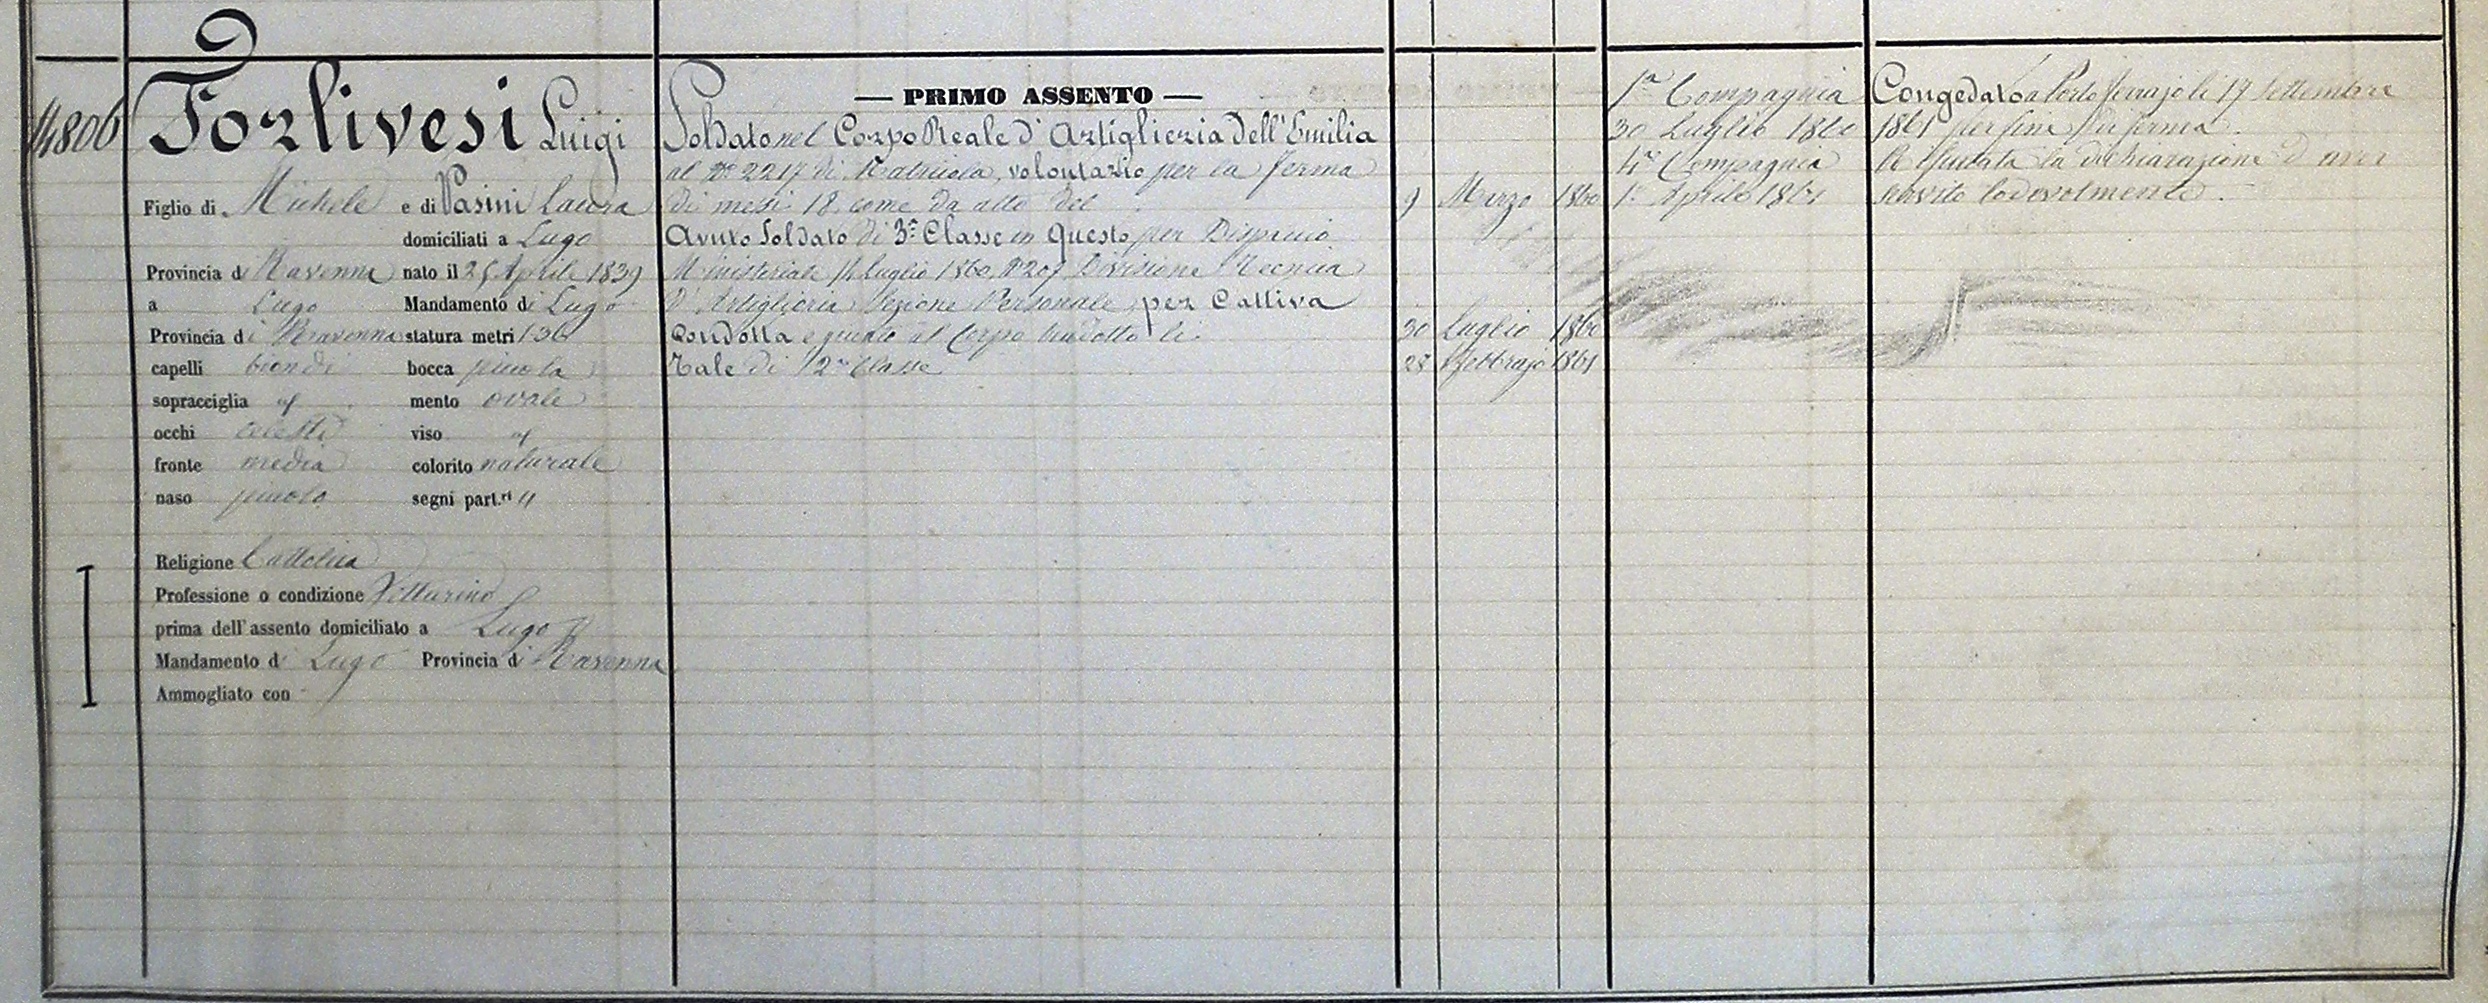 14806
Forlivesi Luigi
Figlio di Michele e di Pasini Laura
domiciliati a Lugo
Provincia di Ravenna nato il 25 Aprile 1839
a Lugo Mandamento di Lugo
Provincia di Ravenna statura metri 1.56
capelli biondi bocca piccola
sopracciglia id mento ovale
occhi celesti viso id
fronte media colorito naturale
naso piccolo segni part.ri
Religione Cattolica
Professione o condizione Vetturino
prima dell'assento domiciliato a Lugo
Mandamento di Lugo Provincia di Ravenna
Ammogliato con
— PRIMO ASSENTO —
Soldato nel Corpo Reale d'Artiglieria dell'Emilia
al N° 2217 di Matricola, volontario per la ferma
di mesi 18 come da atto del 9 Marzo 1860
Avuto Soldato di 3ª Classe in Questo per Dispaccio
Ministeriale 14 Luglio 1860, N° 207 Divisione Tecnica
d'Artiglieria Sezione Personale, per Cattiva
Condotta e giunto al Corpo suddetto li 30 Luglio 1860
Tale di 2ª Classe 28 Febbrajo 1861
1ª Compagnia
30 Luglio 1860
4ª Compagnia
1° Aprile 1861
Congedato a Porto ferrajo li 17 Settembre
1861 per fine di ferma.
Rifiutata la dichiarazione d'aver
servito lodevolmente.